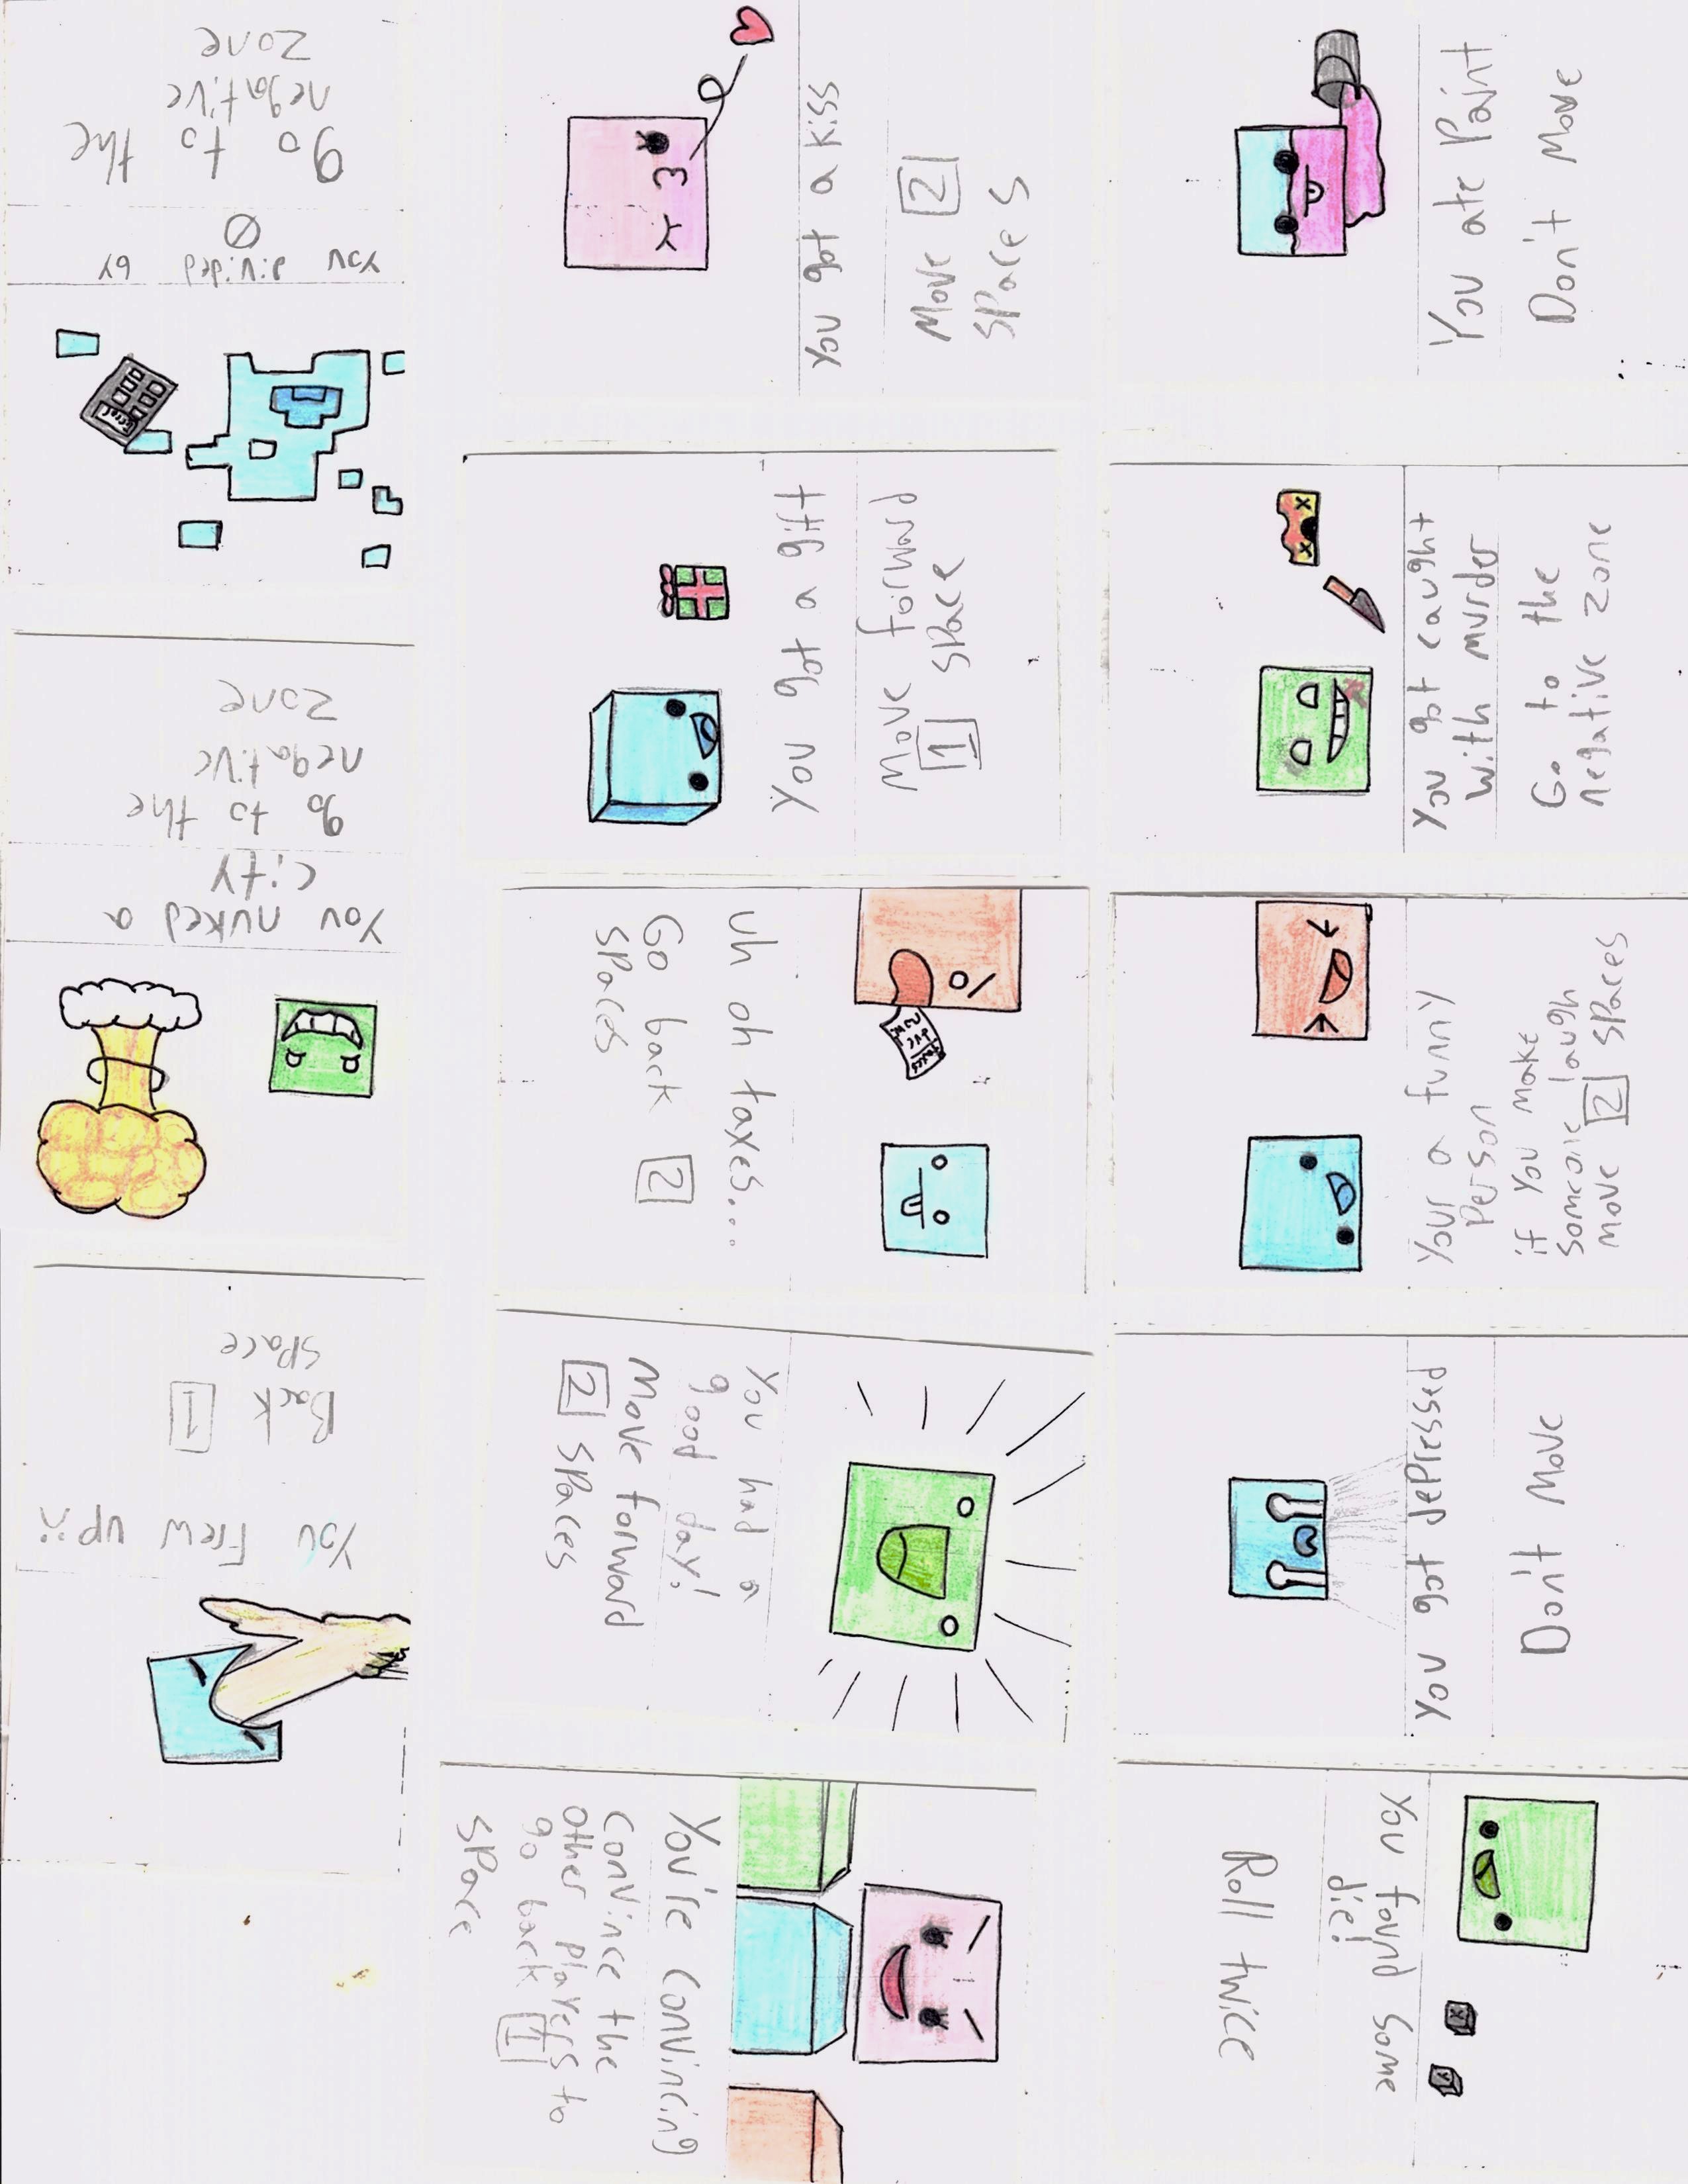 You divided by
0
go to the
negative
zone
You nuked a
city
go to the
negative
zone
You Frew up:(
Back 1
space
You got a kiss
Move 2
spaces
You got a gift
Move forward
1 space
Uh oh taxes...
Go back 2
spaces
You had a
good day!
Move forward
2 spaces
You're convincing
Convince the
other players to
go back 1
space
You ate Paint
Don't Move
You got caught
with murder
Go to the
negative zone
Your a funny
Person
if You make
someone laugh
move 2 spaces
You got depressed
Don't Move
You found some
die!
Roll twice